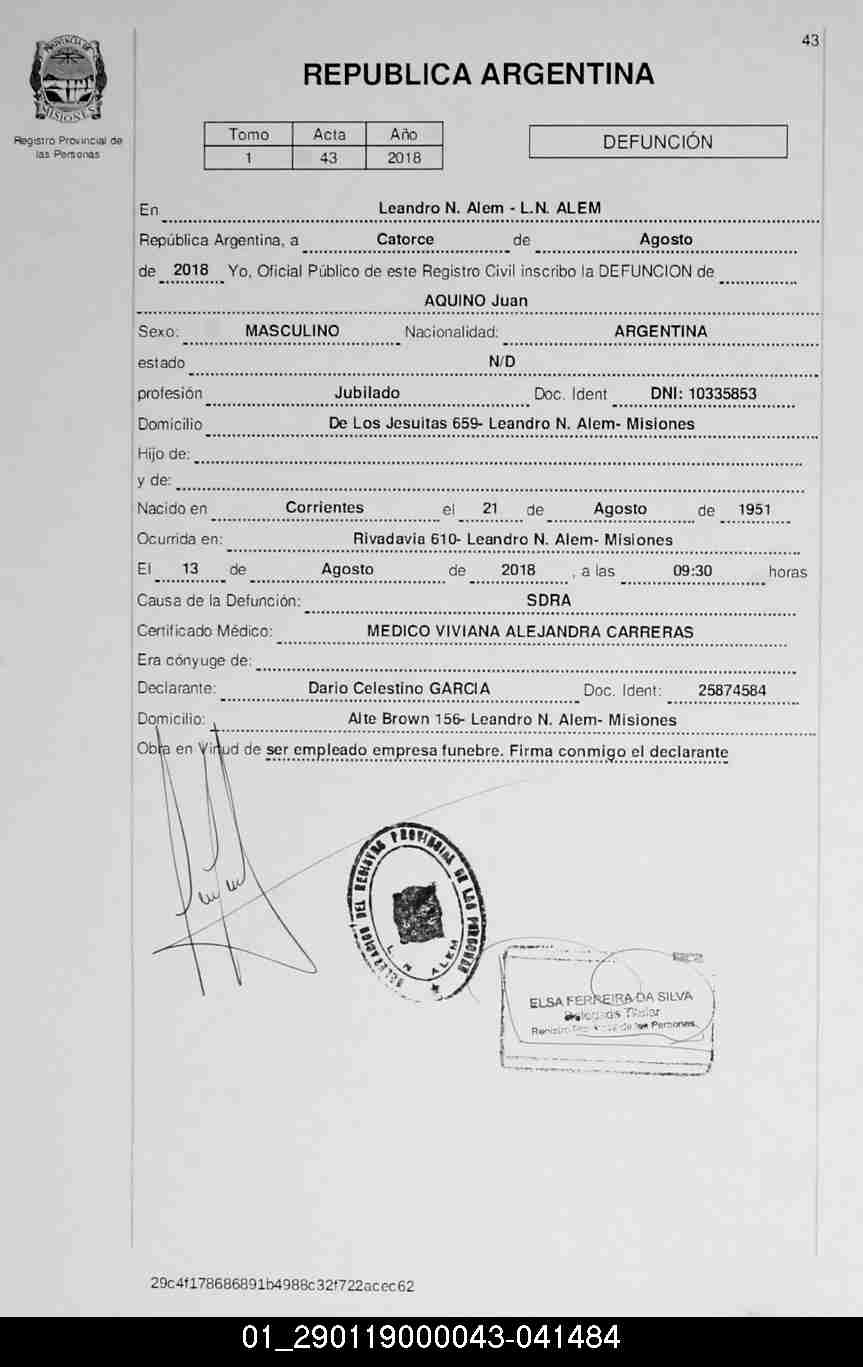 43
REPUBLICA ARGENTINA
PROVINCIA DE
MISIONES
Registro Provincial de
las Personas
Tomo Acta Año
1 43 2018
DEFUNCIÓN
En Leandro N. Alem - L.N. ALEM
República Argentina, a Catorce de Agosto
de 2018 Yo, Oficial Público de este Registro Civil inscribo la DEFUNCION de
AQUINO Juan
Sexo: MASCULINO Nacionalidad: ARGENTINA
estado N/D
profesión Jubilado Doc. Ident DNI: 10335853
Domicilio De Los Jesuitas 659- Leandro N. Alem- Misiones
Hijo de:
y de:
Nacido en Corrientes el 21 de Agosto de 1951
Ocurrida en: Rivadavia 610- Leandro N. Alem- Misiones
El 13 de Agosto de 2018 , a las 09:30 horas
Causa de la Defunción: SDRA
Certificado Médico: MEDICO VIVIANA ALEJANDRA CARRERAS
Era cónyuge de:
Declarante: Dario Celestino GARCIA Doc. Ident: 25874584
Domicilio: Alte Brown 156- Leandro N. Alem- Misiones
Obra en Virtud de ser empleado empresa funebre. Firma conmigo el declarante
DEL REGISTRO PROVINCIAL DE LAS PERSONAS
L. N. ALEM
ELSA FERREIRA DA SILVA
Delegada Titular
de las Personas
29c4f178686891b4988c32f722acec62
01_290119000043-041484